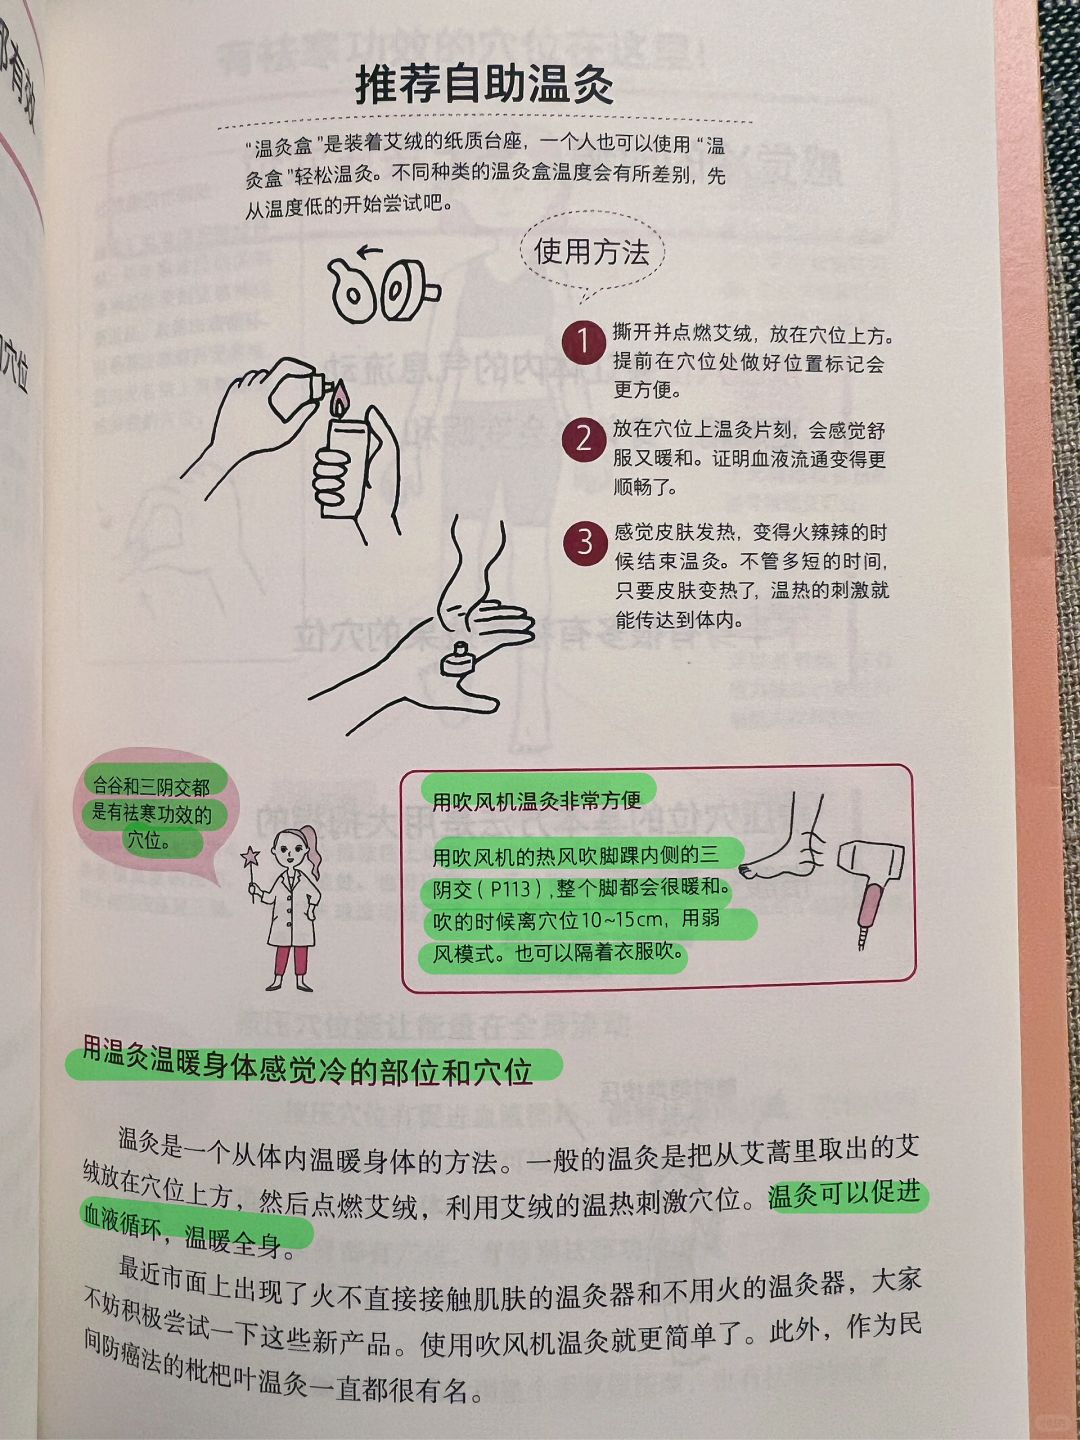 都有效
穴位
推荐自助温灸
“温灸盒”是装着艾绒的纸质台座，一个人也可以使用“温
灸盒”轻松温灸。不同种类的温灸盒温度会有所差别，先
从温度低的开始尝试吧。
使用方法
1 撕开并点燃艾绒，放在穴位上方。
提前在穴位处做好位置标记会
更方便。
2 放在穴位上温灸片刻，会感觉舒
服又暖和。证明血液流通变得更
顺畅了。
3 感觉皮肤发热，变得火辣辣的时
候结束温灸。不管多短的时间，
只要皮肤变热了，温热的刺激就
能传达到体内。
合谷和三阴交都
是有祛寒功效的
穴位。
用吹风机温灸非常方便
用吹风机的热风吹脚踝内侧的三
阴交（P113），整个脚都会很暖和。
吹的时候离穴位10~15cm，用弱
风模式。也可以隔着衣服吹。
用温灸温暖身体感觉冷的部位和穴位
温灸是一个从体内温暖身体的方法。一般的温灸是把从艾蒿里取出的艾
绒放在穴位上方，然后点燃艾绒，利用艾绒的温热刺激穴位。温灸可以促进
血液循环，温暖全身。
最近市面上出现了火不直接接触肌肤的温灸器和不用火的温灸器，大家
不妨积极尝试一下这些新产品。使用吹风机温灸就更简单了。此外，作为民
间防癌法的枇杷叶温灸一直都很有名。